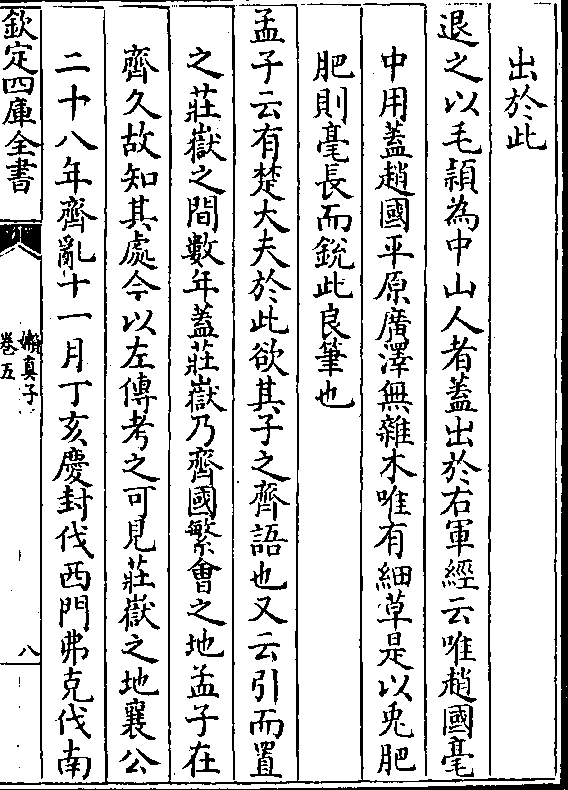 出於此
退之以毛穎為中山人者蓋出於右軍經云唯趙國毫
中用蓋趙國平原廣澤無雜木唯有細草是以兎肥
肥則毫長而銳此良筆也
孟子云有楚大夫於此欲其子之齊語也又云引而置
之莊嶽之間數年蓋莊嶽乃齊國繁會之地孟子在
齊久故知其處今以左傳考之可見莊嶽之地襄公
二十八年齊亂十一月丁亥慶封伐西門弗克伐南
欽定四庫全書
嬾真子
卷五
八